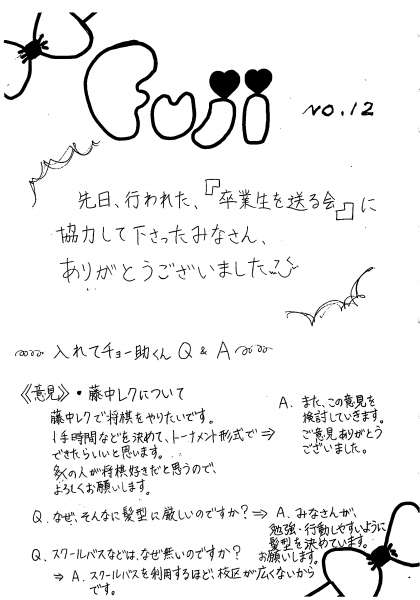 Fuji
NO.12
先日、行われた、『卒業生を送る会』に
協力して下さったみなさん、
ありがとうございました
入れてチョー助くん Q & A
《意見》・藤中レクについて
藤中レクで将棋をやりたいです。
1手時間などを決めて、トーナメント形式で ⇒
できたらいいと思います。
多くの人が将棋好きだと思うので、
よろしくお願いします。
A. また、この意見を
検討していきます。
ご意見ありがとう
ございました。
Q. なぜ、そんなに髪型に厳しいのですか? ⇒ A. みなさんが、
勉強・行動しやすいように
髪型を決めています。
お願いします。
Q. スクールバスなどは、なぜ無いのですか?
⇒ A. スクールバスを利用するほど、校区が広くないから
です。